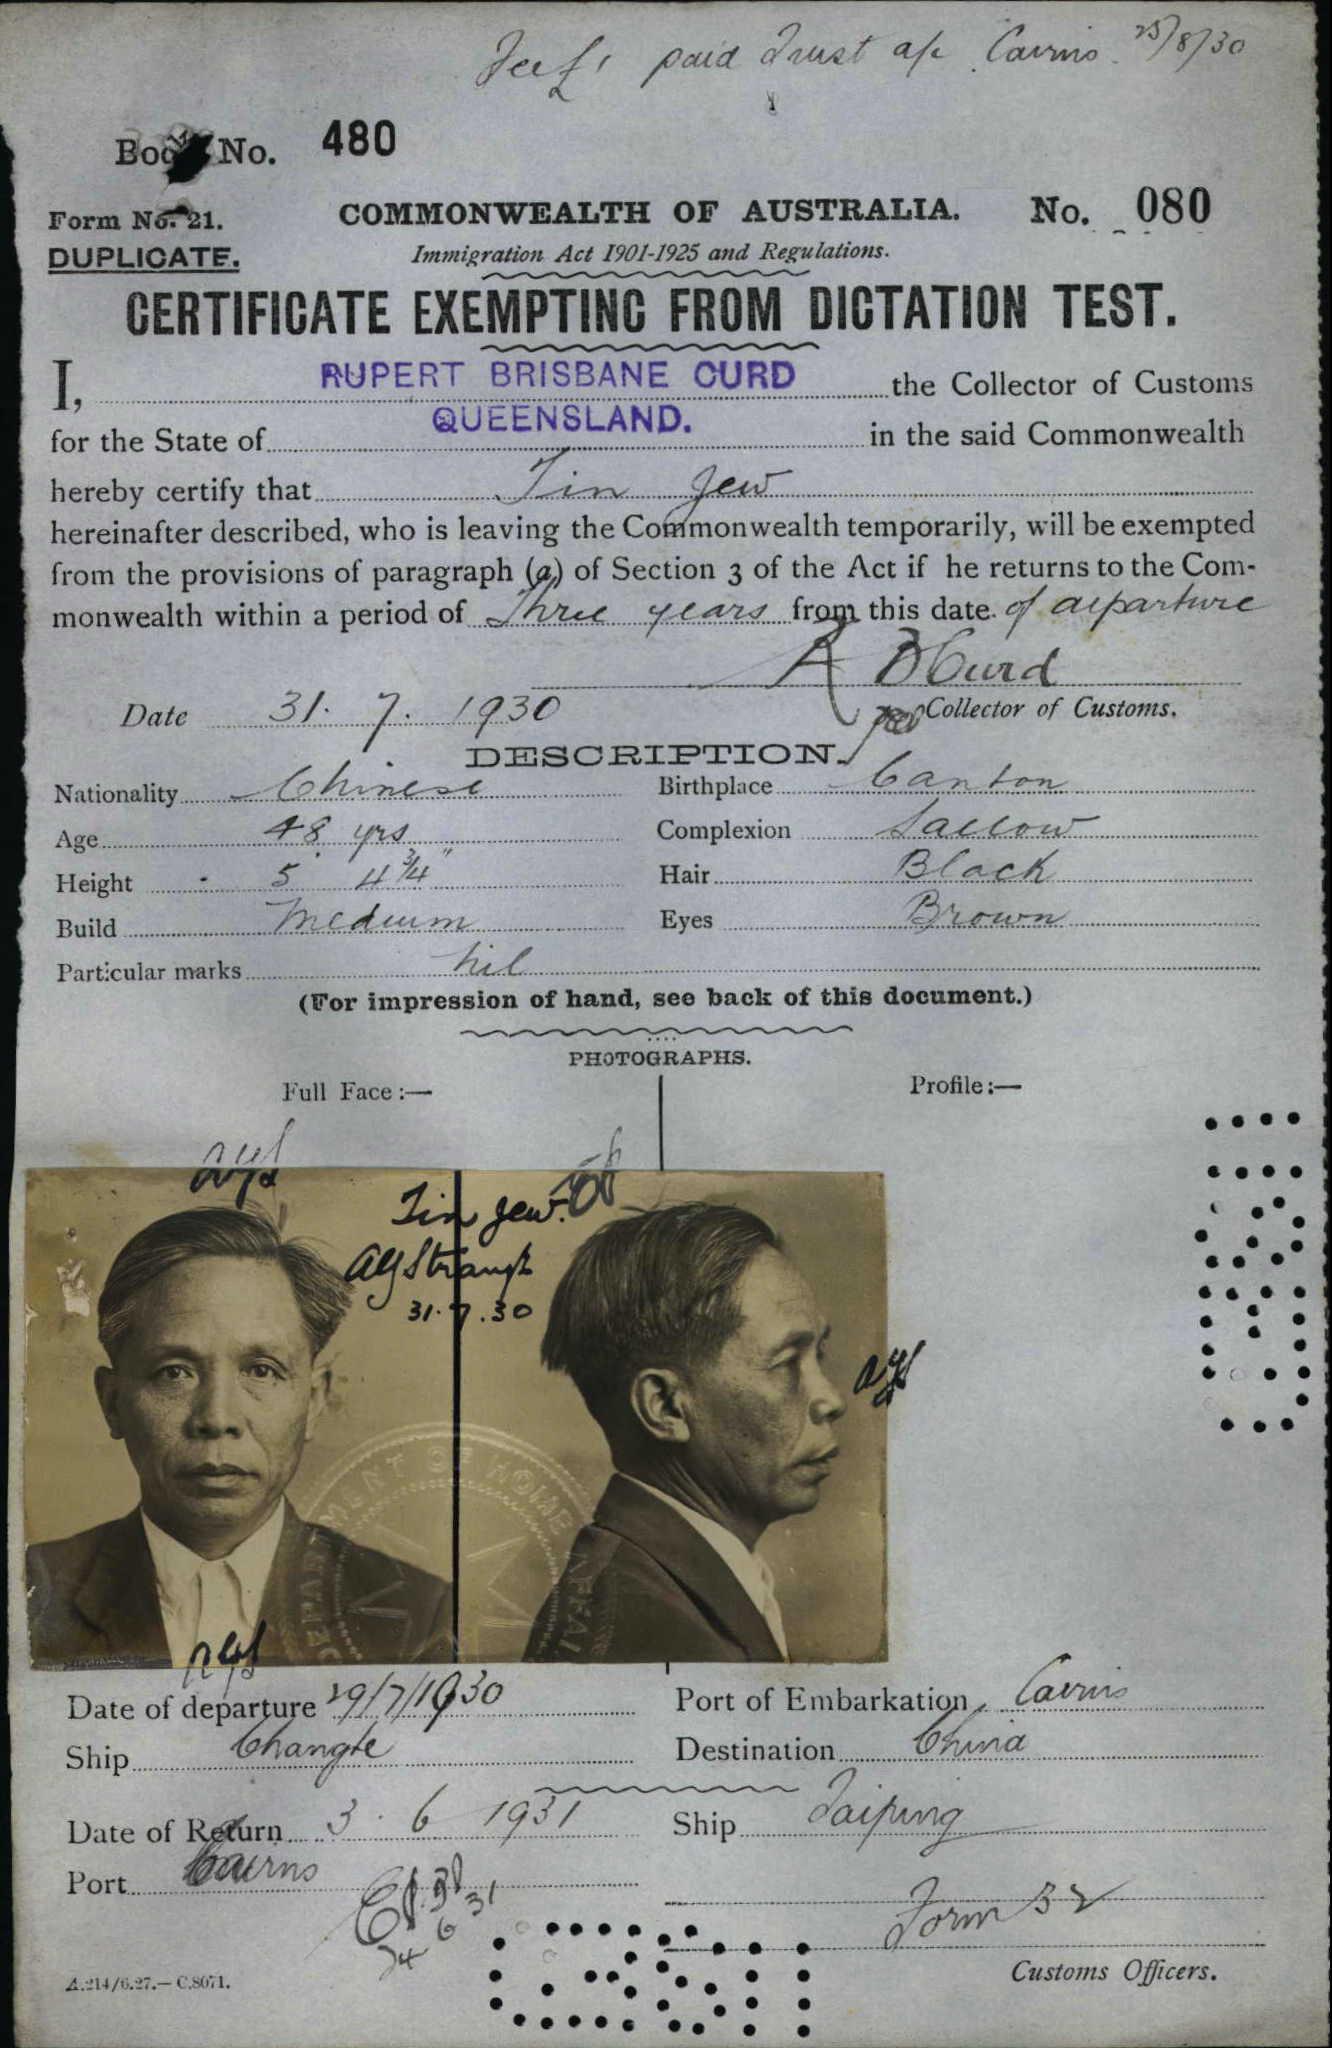 Fee £1 paid Trust a/c Cairns 25/8/30
Book No. 480
Form No. 21. COMMONWEALTH OF AUSTRALIA. No. 080
DUPLICATE. Immigration Act 1901-1925 and Regulations.
CERTIFICATE EXEMPTING FROM DICTATION TEST.
I, RUPERT BRISBANE CURD the Collector of Customs
for the State of QUEENSLAND. in the said Commonwealth
hereby certify that Tin Jew
hereinafter described, who is leaving the Commonwealth temporarily, will be exempted
from the provisions of paragraph (a) of Section 3 of the Act if he returns to the Com-
monwealth within a period of Three years from this date of departure
R B Curd
Date 31. 7. 1930 Collector of Customs.
DESCRIPTION.
Nationality Chinese Birthplace Canton
Age 48 yrs Complexion Sallow
Height 5' 4 3/4" Hair Black
Build Medium Eyes Brown
Particular marks Nil
(For impression of hand, see back of this document.)
PHOTOGRAPHS.
Full Face:— Profile:—
Tin Jew.
31.7.30
Date of departure 29/7/1930 Port of Embarkation Cairns
Ship Changte Destination China
Date of Return 3. 6 1931 Ship Taiping
Port Cairns
Form 32
Customs Officers.
A.214/6.27.—C.8071.